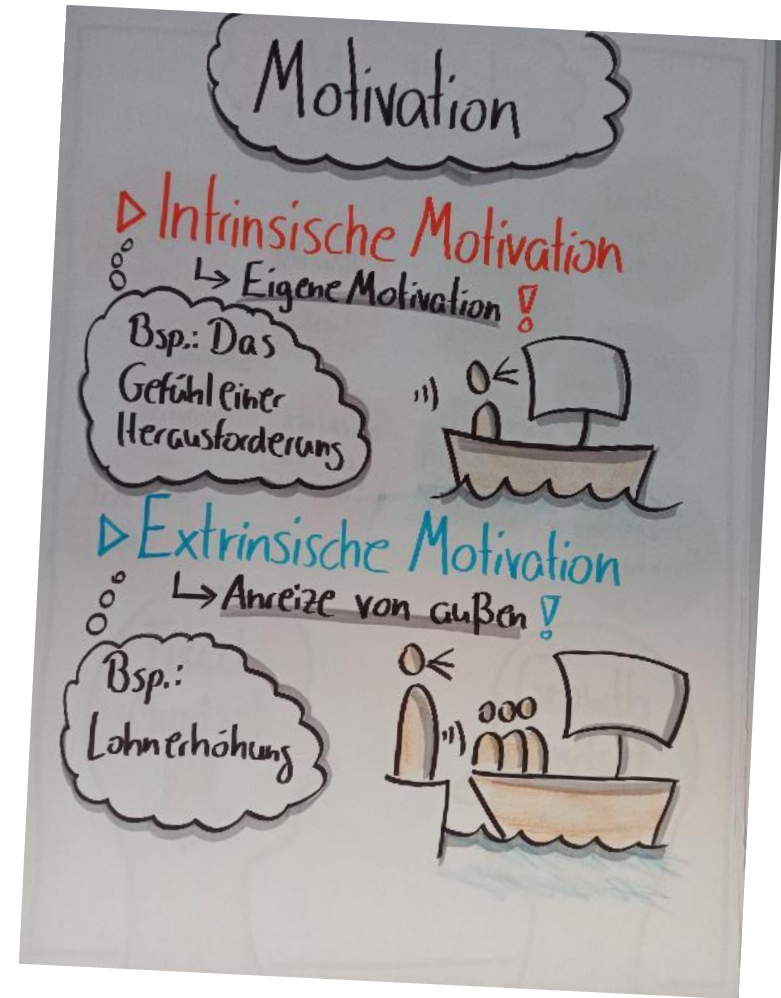 Motivation
Intrinsische Motivation
↳ Eigene Motivation !
Bsp.: Das
Gefühl einer
Herausforderung
Extrinsische Motivation
↳ Anreize von außen !
Bsp.:
Lohnerhöhung